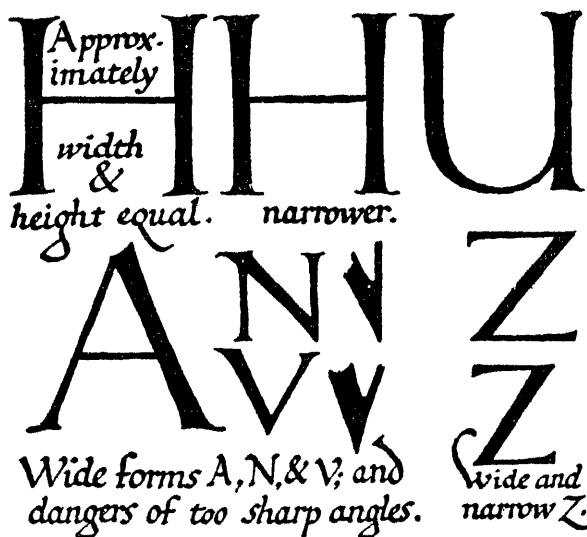 H H U
Approx-
imately
width
&
height equal.
narrower.
A N Z
V Z
Wide forms A, N, & V; and
dangers of too sharp angles.
Wide and
narrow Z.